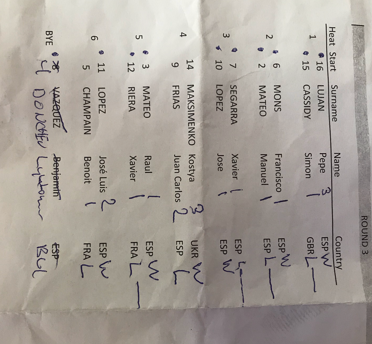 ROUND 3
Heat Start Surname Name Country
1 16 LUJAN Pepe 3 ESP W
15 CASSIDY Simon 1 GBR L
2 6 MONS Francisco 1 ESP W
2 MATEO Manuel 1 ESP L
3 7 SEGARRA Xavier 1 ESP L
10 LOPEZ Jose 1 ESP W
4 14 MAKSIMENKO Kostya 3 UKR W
9 FRIAS Juan Carlos 2 ESP L
5 3 MATEO Raul 1 ESP W
12 RIERA Xavier 1 FRA L
6 11 LOPEZ José Luis 2 ESP W
5 CHAMPAIN Benoit 1 FRA L
BYE 4 VAZQUEZ Benjamin ESP
DONCHEV BUL